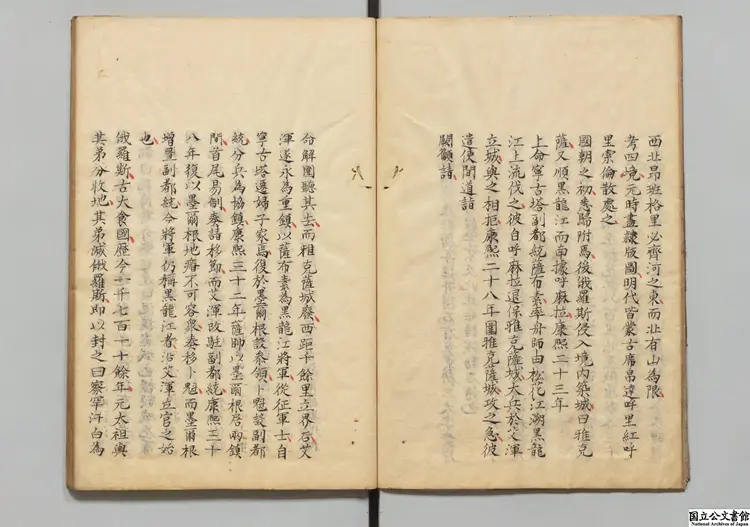 西北昂班格里必齊河之東而北有山為限
考四境元時盡隸版圖明代皆蒙古席帛達呼里紅呼
里索倫散處之
國朝之初悉歸附焉後俄羅斯侵入境內築城曰雅克
薩又順黑龍江而南據呼麻拉康熙二十三年
上命寧古塔副都統薩布素率舟師由松花江溯黑龍
江上流伐之彼自呼麻拉退保雅克薩城大兵於艾渾
立城與之相拒康熙二十八年圍雅克薩城攻之急彼
遣使間道詣
闕籲請
命解圍聽其去而雅克薩城廢西距千餘里立界石艾
渾遂永為重鎮以薩布素為黑龍江將軍從征軍士自
寧古塔遷婦子家焉復於墨爾根設參領卜魁設副都
統分兵為協鎮康熙三十二年薩帥以墨爾根居兩鎮
間首尾易制奏請移節而艾渾改駐副都統康熙三十
八年復以墨爾根地瘠不可容眾奏移卜魁而墨爾根
增置副都統今將軍仍稱黑龍江者沿艾渾立官之始
也
俄羅斯古大食國歷今一千七百一十餘年元太祖與
其弟分收地其弟滅俄羅斯即以封之曰察罕汗白為
国立公文書館
National Archives of Japan